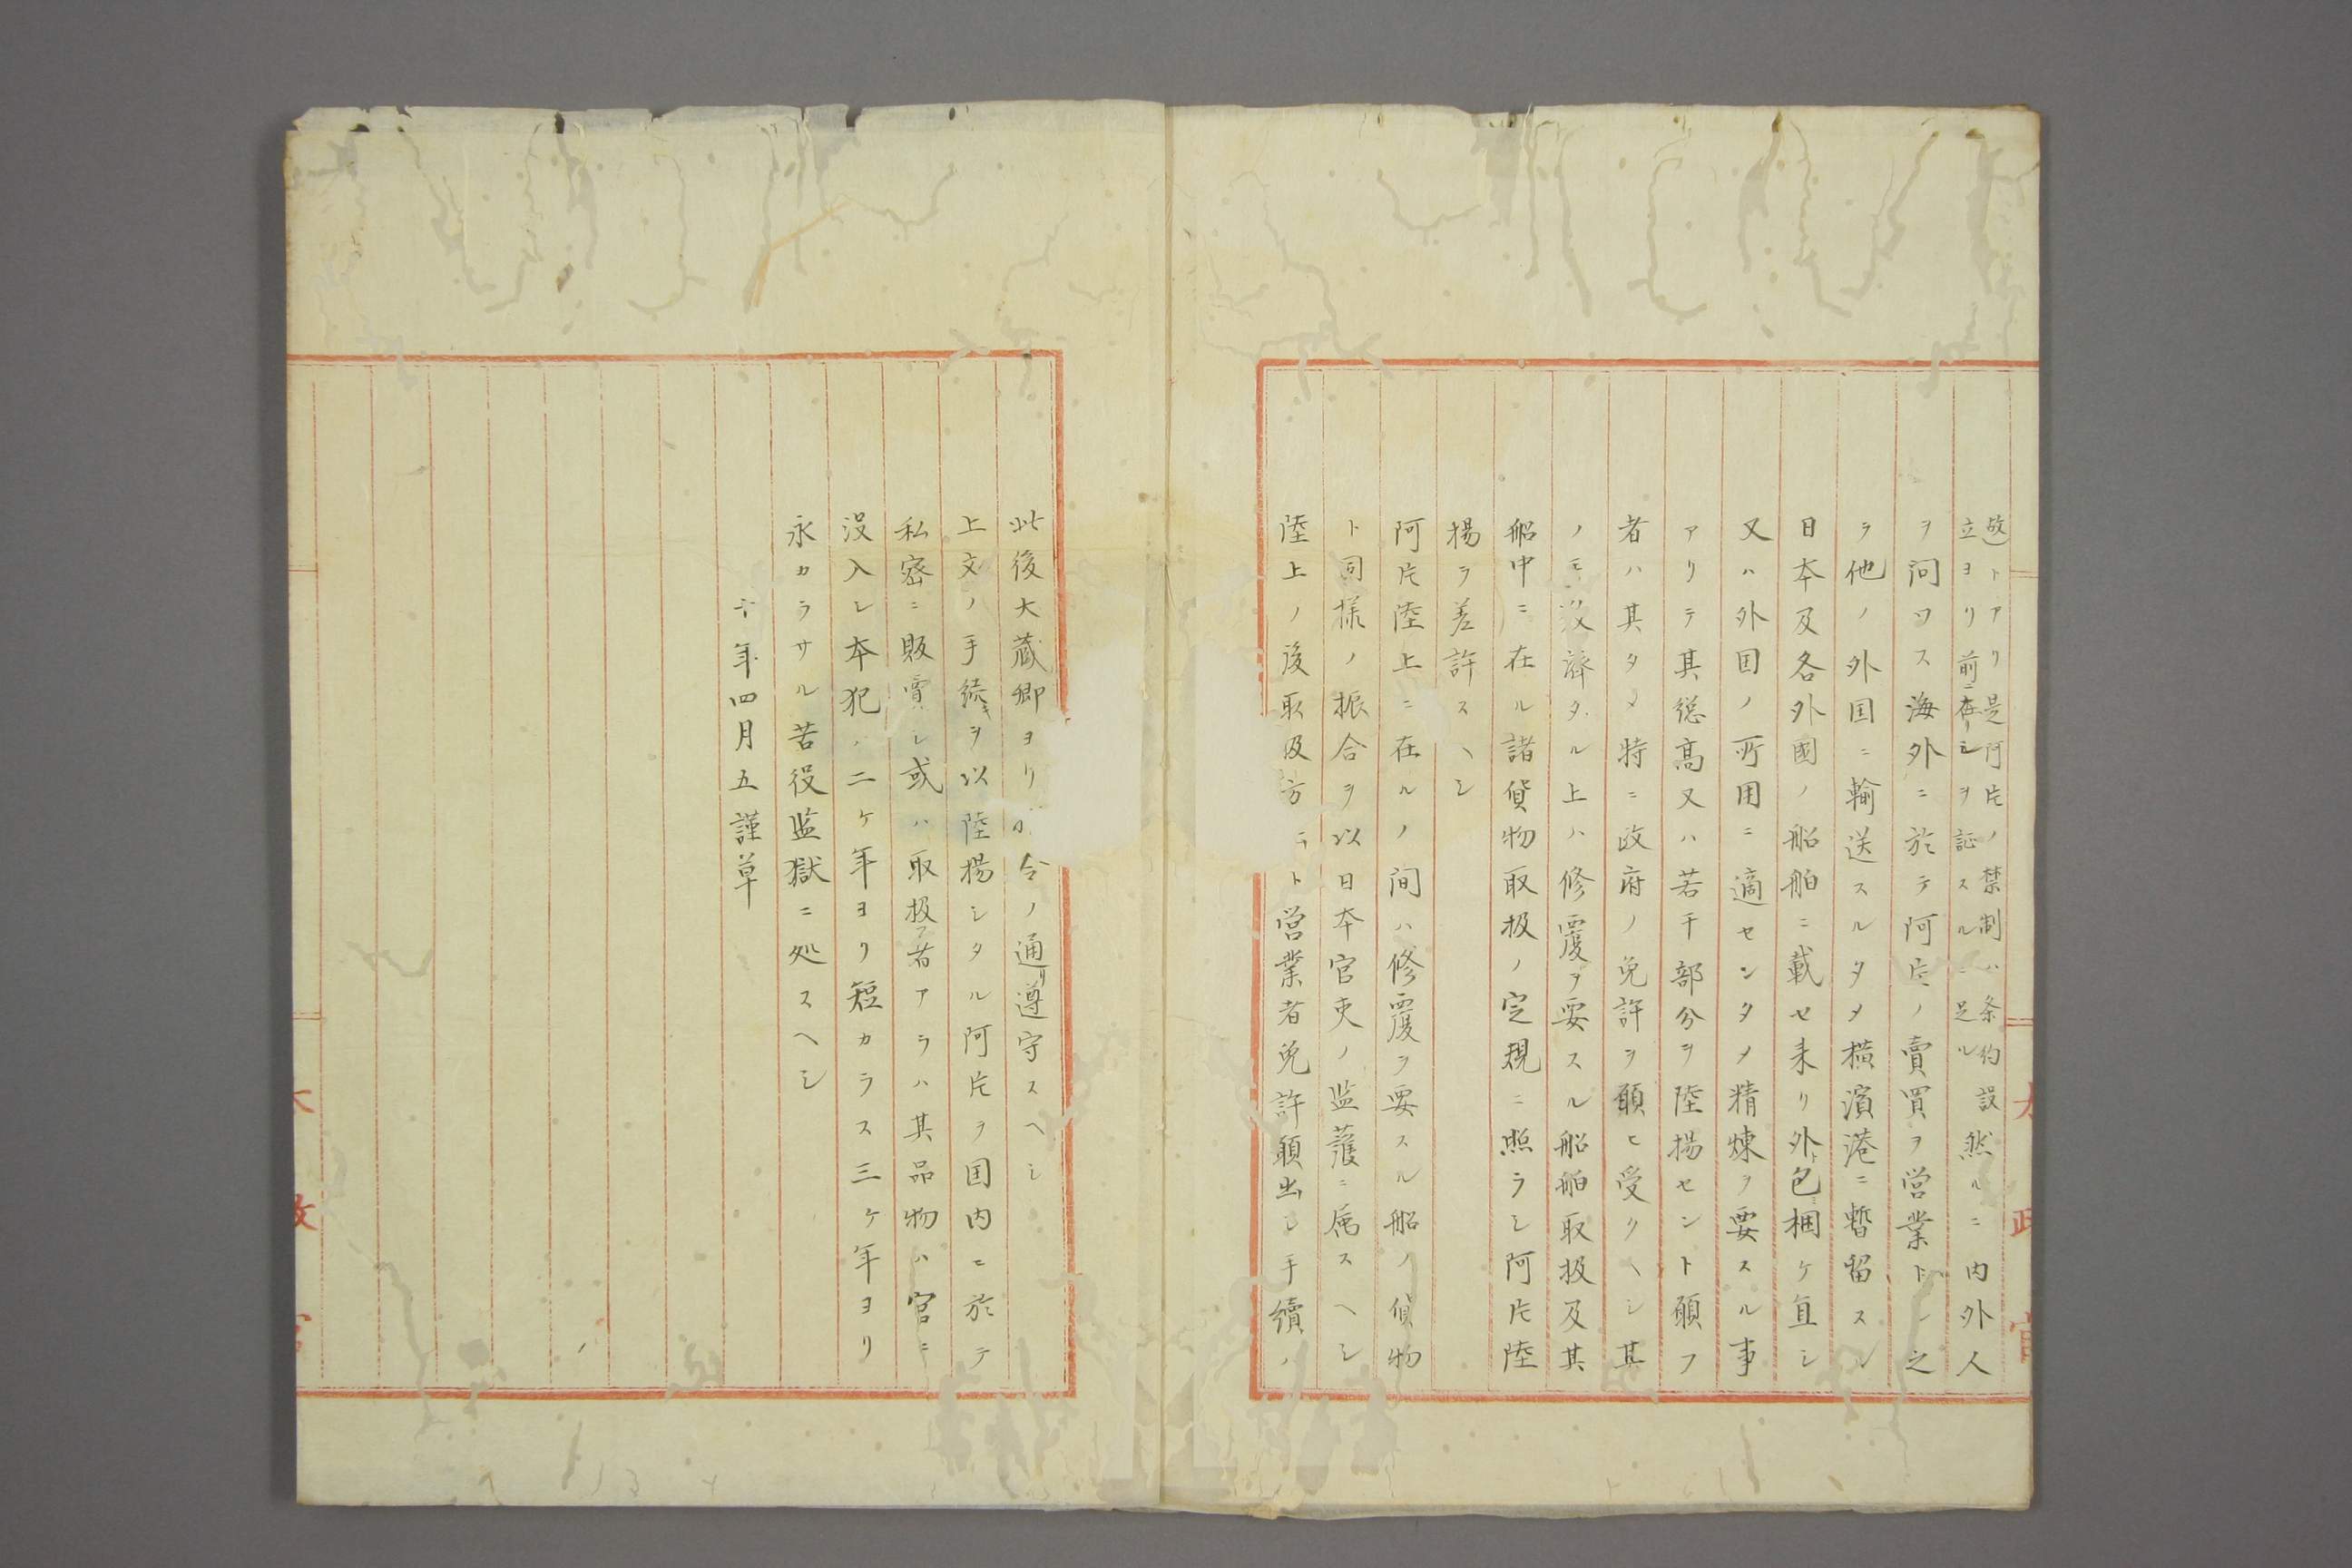 故)トアリ是阿片ノ禁制ハ条約設
立ヨリ前ニ在リシヲ証スルニ足ル然ルニ内外人
ヲ問ワス海外ニ於テ阿片ノ賣買ヲ営業トシ之
ヲ他ノ外国ニ輸送スルタメ横濱港ニ暫留スル
日本及各外國ノ船舶ニ載セ来リ外包ミ梱ケ直シ
又ハ外国ノ所用ニ適センタメ精煉ヲ要スル事
アリテ其総高又ハ若干部分ヲ陸揚セント願フ
者ハ其タメ特ニ政府ノ免許ヲ願ヒ受クヘシ其
ノモ済タル上ハ修覆ヲ要スル船舶取扱及其
船中ニ在ル諸貨物取扱ノ定規ニ照ラシ阿片陸
揚ヲ差許スヘシ
阿片陸上ニ在ルノ間ハ修覆ヲ要スル船ノ貨物
ト同様ノ振合ヲ以日本官吏ノ監護ニ属スヘシ
陸上ノ後取扱方ト営業者免許願出シ手續ノ
太政官
此後大蔵卿ヨリノ令ノ通リ遵守スヘシ
上文ノ手続キヲ以陸揚シタル阿片ヲ国内ニ於テ
私密ニ販賣シ或ハ取扱フ者アラハ其品物ハ官ニ
没入シ本犯ハ二ケ年ヨリ短カラス三ケ年ヨリ
永カラサル苦役監獄ニ処スヘシ
十年四月五謹草